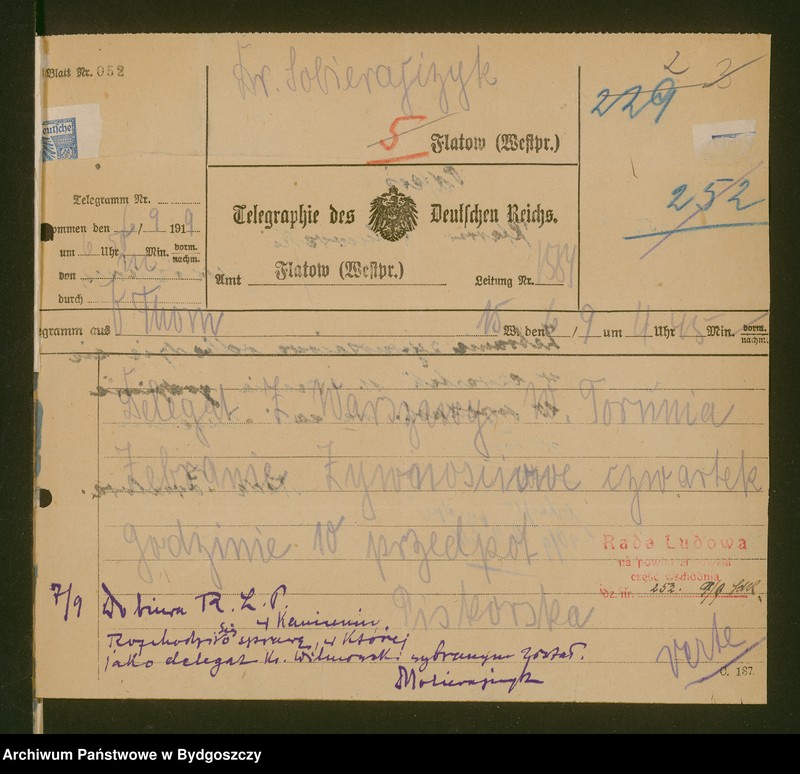 Blatt Nr. 052
Dr. Sobierajczyk
5 Flatow (Westpr.)
2 3
229
252
Deutsche
Telegramm Nr.
ommen den 6/9 1919
um Uhr Min. vorm. nachm.
von
durch
Telegraphie des Deutschen Reichs.
Amt Flatow (Westpr.) Leitung Nr.
egramm aus Thorn 15 W. den 6/9 um 11 Uhr 45 Min. vorm. nachm.
Delegat z Warszawy w. Torunia
Zebranie Żywnościowe czwartek
godzinie 10 przedpoł
Piskorska
Rada Ludowa
na powiat
część wschodnia
Dz. nr. 252.
7/9 Do biura R. L. P.
w Kamieniu.
Rozchodzi się o sprawę, w której
jako delegat ks. Wilmowski wybranym został.
Sobierajczyk
verte
C. 187.
Archiwum Państwowe w Bydgoszczy